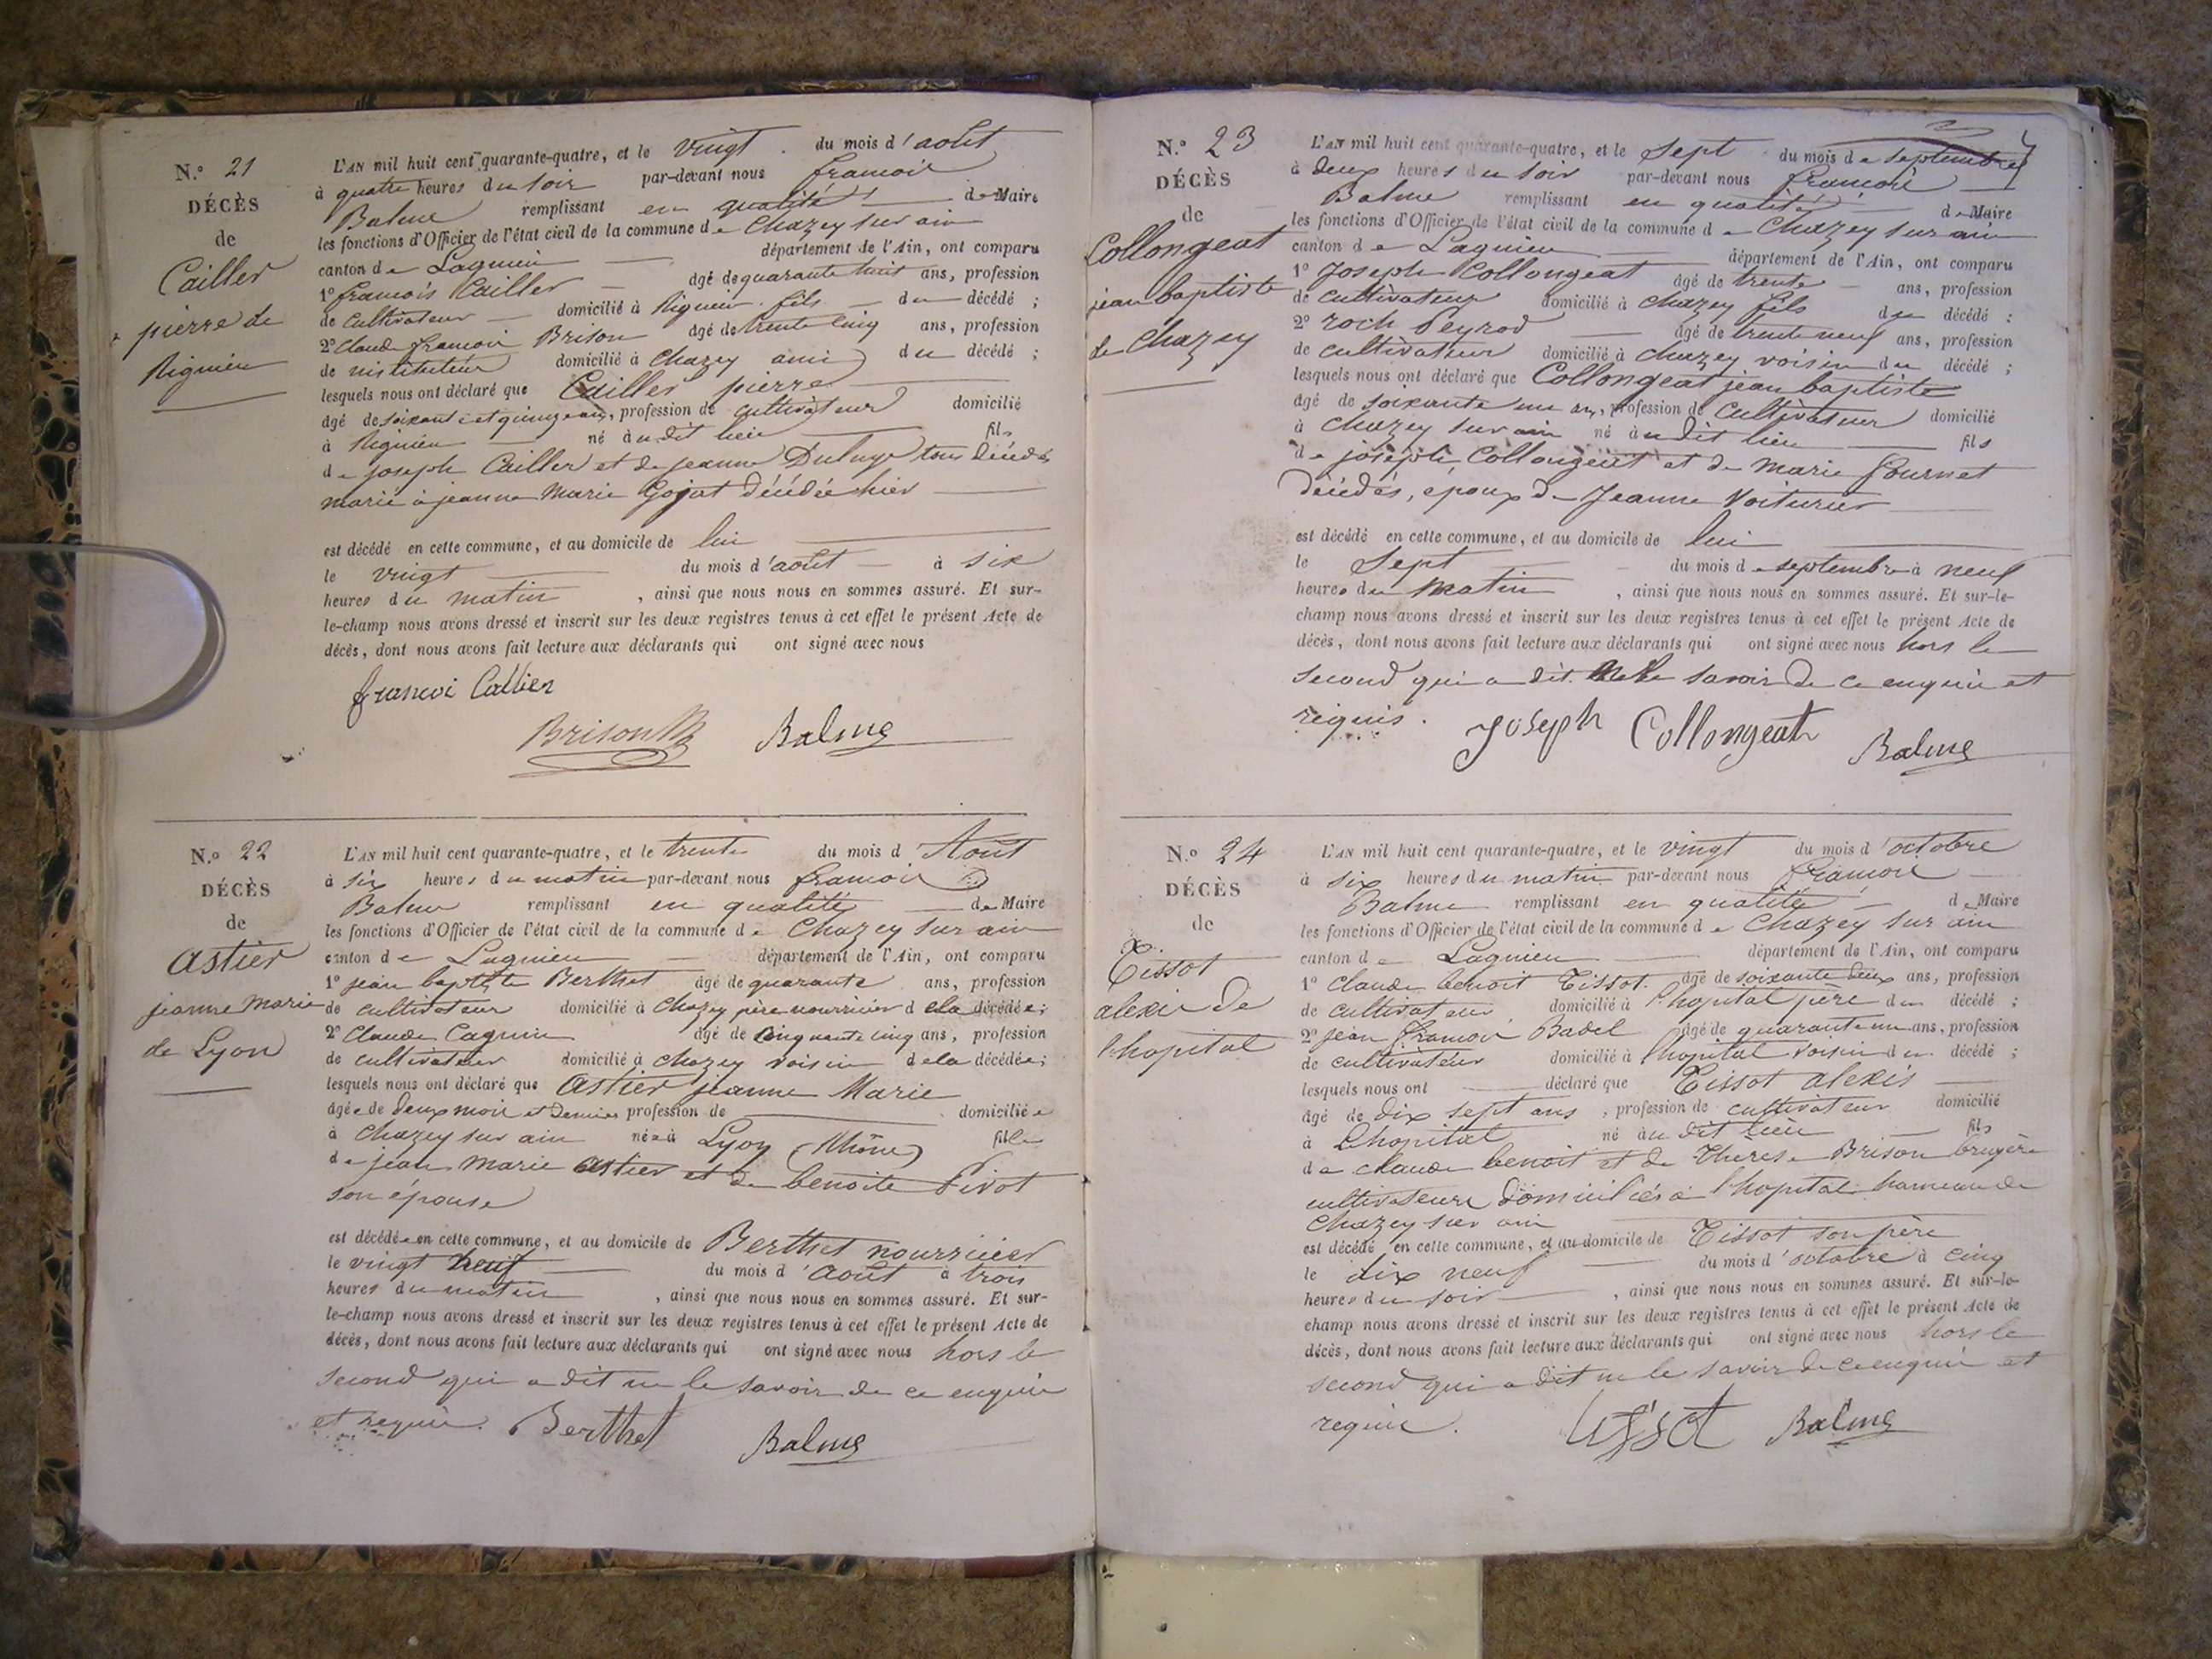 N.o 21
DÉCÈS
de
Cailler
pierre de
Rignieu
L'AN mil huit cent quarante-quatre, et le vingt du mois d'août
à quatre heures du soir par-devant nous françois
Balme remplissant en qualité de Maire
les fonctions d'Officier de l'état civil de la commune de Chazey sur ain
canton de Lagnieu département de l'Ain, ont comparu
1o françois Cailler âgé de quarante huit ans, profession
de cultivateur domicilié à Rignieu fils du décédé ;
2o Claude françois Brison âgé de trente cinq ans, profession
de instituteur domicilié à Chazey ami du décédé ;
lesquels nous ont déclaré que Cailler pierre
âgé de soixante et quinze ans, profession de cultivateur domicilié
à Rignieu né au dit lieu fils
de joseph Cailler et de jeanne tous décédés
marié à jeanne Marie Gojat décédée hier
est décédé en cette commune, et au domicile de lui
le vingt du mois d'août à six
heures du matin , ainsi que nous nous en sommes assuré. Et sur-
le-champ nous avons dressé et inscrit sur les deux registres tenus à cet effet le présent Acte de
décès, dont nous avons fait lecture aux déclarants qui ont signé avec nous
francoi Callier
Brison Balme
N.o 22
DÉCÈS
de
Astier
jeanne Marie
de Lyon
L'AN mil huit cent quarante-quatre, et le trente du mois d'Août
à six heures du matin par-devant nous françois
Balme remplissant en qualité de Maire
les fonctions d'Officier de l'état civil de la commune de Chazey sur ain
canton de Lagnieu département de l'Ain, ont comparu
1o jean baptiste Berthet âgé de quarante ans, profession
de cultivateur domicilié à Chazey père nourricier de la décédée ;
2o Claude Cagnin âgé de cinquante cinq ans, profession
de cultivateur domicilié à chazey voisin de la décédée ;
lesquels nous ont déclaré que Astier jeanne Marie
âgée de deux mois et demi profession de domiciliée
à Chazey sur ain née à Lyon (Rhône) fille
de jean Marie Astier et de benoite Pivot
son épouse
est décédée en cette commune, et au domicile de Berthet nourricier
le vingt neuf du mois d'Août à trois
heures du matin , ainsi que nous nous en sommes assuré. Et sur-
le-champ nous avons dressé et inscrit sur les deux registres tenus à cet effet le présent Acte de
décès, dont nous avons fait lecture aux déclarants qui ont signé avec nous hors le
second qui a dit ne le savoir de ce enquis
et requis. Berthet Balme
N.o 23
DÉCÈS
de
Collongeat
jean baptiste
de Chazey
L'AN mil huit cent quarante-quatre, et le sept du mois de septembre
à deux heures du soir par-devant nous françois
Balme remplissant en qualité de Maire
les fonctions d'Officier de l'état civil de la commune de Chazey sur ain
canton de Lagnieu département de l'Ain, ont comparu
1o Joseph Collongeat âgé de trente ans, profession
de cultivateur domicilié à chazey fils du décédé :
2o roch Peyrod âgé de trente neuf ans, profession
de cultivateur domicilié à chazey voisin du décédé ;
lesquels nous ont déclaré que Collongeat jean baptiste
âgé de soixante un an, profession de cultivateur domicilié
à Chazey sur ain né au dit lieu fils
de joseph Collongeat et de Marie fournet
décédés, époux de Jeanne Voiturier
est décédé en cette commune, et au domicile de lui
le Sept du mois de septembre à neuf
heures du Matin , ainsi que nous nous en sommes assuré. Et sur-le-
champ nous avons dressé et inscrit sur les deux registres tenus à cet effet le présent Acte de
décès, dont nous avons fait lecture aux déclarants qui ont signé avec nous hors le
second qui a dit ne le savoir de ce enquis et
requis. Joseph Collongeat Balme
N.o 24
DÉCÈS
de
Tissot
alexis de
l'hopital
L'AN mil huit cent quarante-quatre, et le vingt du mois d'octobre
à six heures du matin par-devant nous françois
Balme remplissant en qualité de Maire
les fonctions d'Officier de l'état civil de la commune de Chazey sur ain
canton de Lagnieu département de l'Ain, ont comparu
1o Claude benoit Tissot âgé de soixante deux ans, profession
de cultivateur domicilié à l'hopital père du décédé ;
2o jean françois Badel âgé de quarante un ans, profession
de cultivateur domicilié à l'hopital voisin du décédé ;
lesquels nous ont déclaré que Tissot alexis
âgé de dix sept ans , profession de cultivateur domicilié
à l'hopital né au dit lieu fils
de claude benoit et de Therese Brison bruyère
cultivateurs domiciliés à l'hopital hameau de
Chazey sur ain
est décédé en cette commune, et au domicile de Tissot son père
le dix neuf du mois d'octobre à cinq
heures du soir , ainsi que nous nous en sommes assuré. Et sur-le-
champ nous avons dressé et inscrit sur les deux registres tenus à cet effet le présent Acte de
décès, dont nous avons fait lecture aux déclarants qui ont signé avec nous hors le
second qui a dit ne le savoir de ce enquis et
requis. Tissot Balme